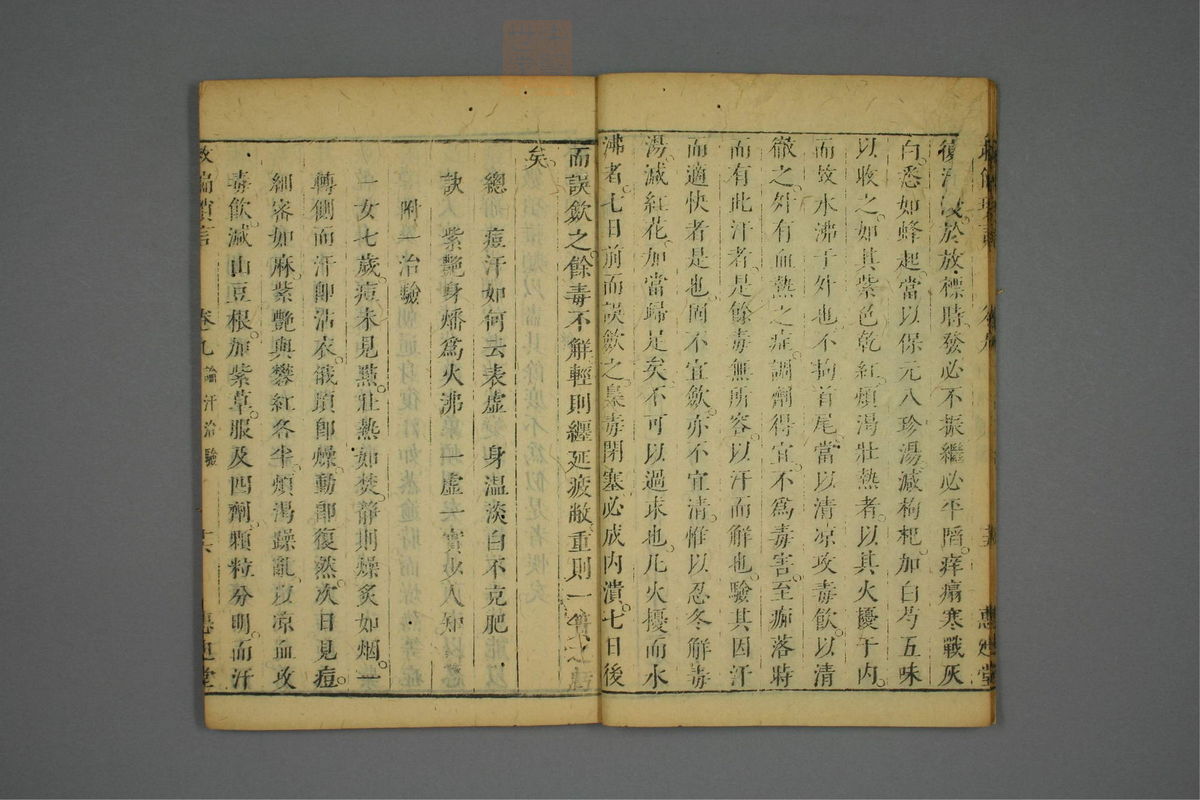 後汗沒於放標時發必不振繼必平䧟痒癟寒戰灰
白悉如蜂起當以保元八珍湯減枸杞加白芍五味
以收之如其紫色乾紅煩渴壯熱者以其火擾于内
而致水沸于外也不拘首尾當以清凉攻毒飲以清
徹之外有血熱之症調劑得宜不爲毒害至痂落時
而有此汗者是餘毒無所容以汗而解也驗其因汗
而適快者是也固不宜歛亦不宜清惟以忍冬解毒
湯減紅花加當歸足矣不可以過求也凡火擾而水
沸者七日前而誤歛之梟毒閉塞必成内潰七日後
而誤歛之餘毒不解輕則纏延疲敝重則一
矣
總 痘汗如何去表虛 身温淡白不克肥
訣 紫艷身燔爲火沸 一虛一實少人知
附一治驗
一女七歲痘未見㸃壯熱如焚静則燥炙如烟一
轉側而汗卽沾衣俄頃卽燥動卽復然次日見痘
細密如麻紫艷與礬紅各半煩渴躁亂以凉血攻
毒飲減山豆根加紫草服及四劑顆粒分明而汗
救偏瑣言 卷九 論汗治驗 惠廸堂